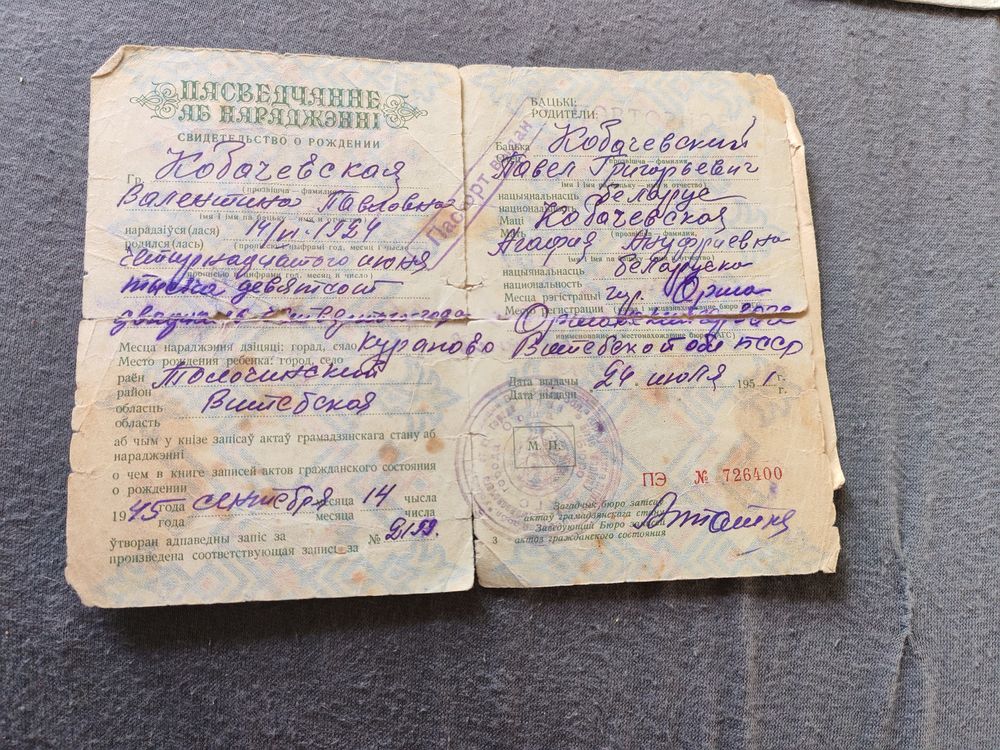 ПАСВЕДЧАННЕ
АБ НАРАДЖЭННІ
СВИДЕТЕЛЬСТВО О РОЖДЕНИИ
Гр. Кобачевская
(прозвішча — фамилия)
Валентина Павловна
імя і імя па бацьку — имя и отчество)
нарадзіўся (лася) 14/VI-1924
родился(лась) (прописью и цифрами год, месяц и число)
четырнадцатого июня
(прописью и цифрами год, месяц и число)
тысяча девятсот
двадцать четвертого года
Месца нараджэння дзіцяці: горад, сяло Кураново
Место рождения ребенка: город, село
раён Толочинский
район
обласць Витебская
область
аб чым у кнізе запісаў актаў грамадзянскага стану аб
нараджэнні
о чем в книге записей актов гражданского состояния
о рождении
1945 года сентября месяца 14 числа
года месяца числа
ўтворан адпаведны запіс за № 2153.
произведена соответствующая запись за
Паспорт выдан
БАЦЬКІ:
РОДИТЕЛИ:
Бацька Кобачевский
прозвішча — фамилия
Павел Григорьевич
імя і імя па бацьку — имя и отчество)
нацыянальнасць беларус
национальность
Маці Кобачевская
Мать прозвішча — фамилия,
Агафия Ануфриевна
імя і імя па бацьку — имя и отчество)
нацыянальнасць беларуска
национальность
Месца рэгістрацыі гор. Орша
Место регистрации
Витебской обл БССР
Дата выдачы 24 июля 1951 г.
Дата выдачи г.
М. П.
ПЭ № 726400
Загадчык бюро запісаў
актаў грамадзянскага стану
Заведующий Бюро записи
3 актов гражданского состояния